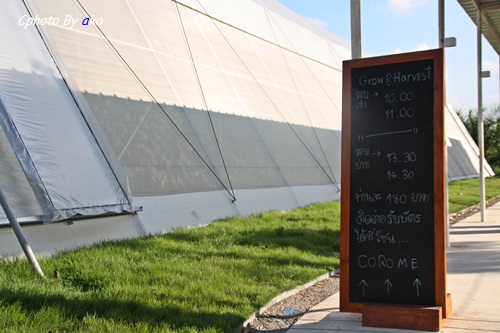 Cphoto By aka
Grow & Harvest
รอบ → 10.00
เช้า 11.00
รอบ → 13.30
บ่าย 14.30
ท่านละ 180 บาท
ติดต่อรับบัตร
ได้ที่โซน...
COROME
↑ ↑ ↑